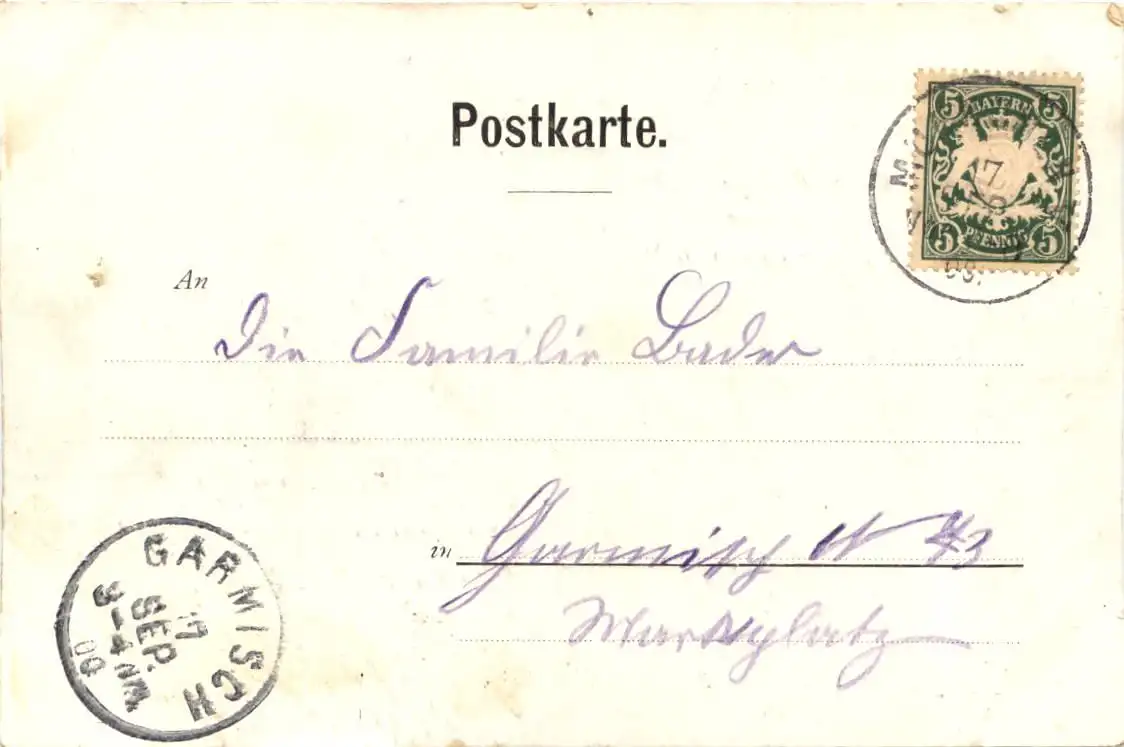 Postkarte.
5 BAYERN 5
5 PFENNIG 5
17.
An
Die Familie Bader
in Garmisch N 43
Marktplatz
GARMISCH
17
SEP.
3-4 NM
00